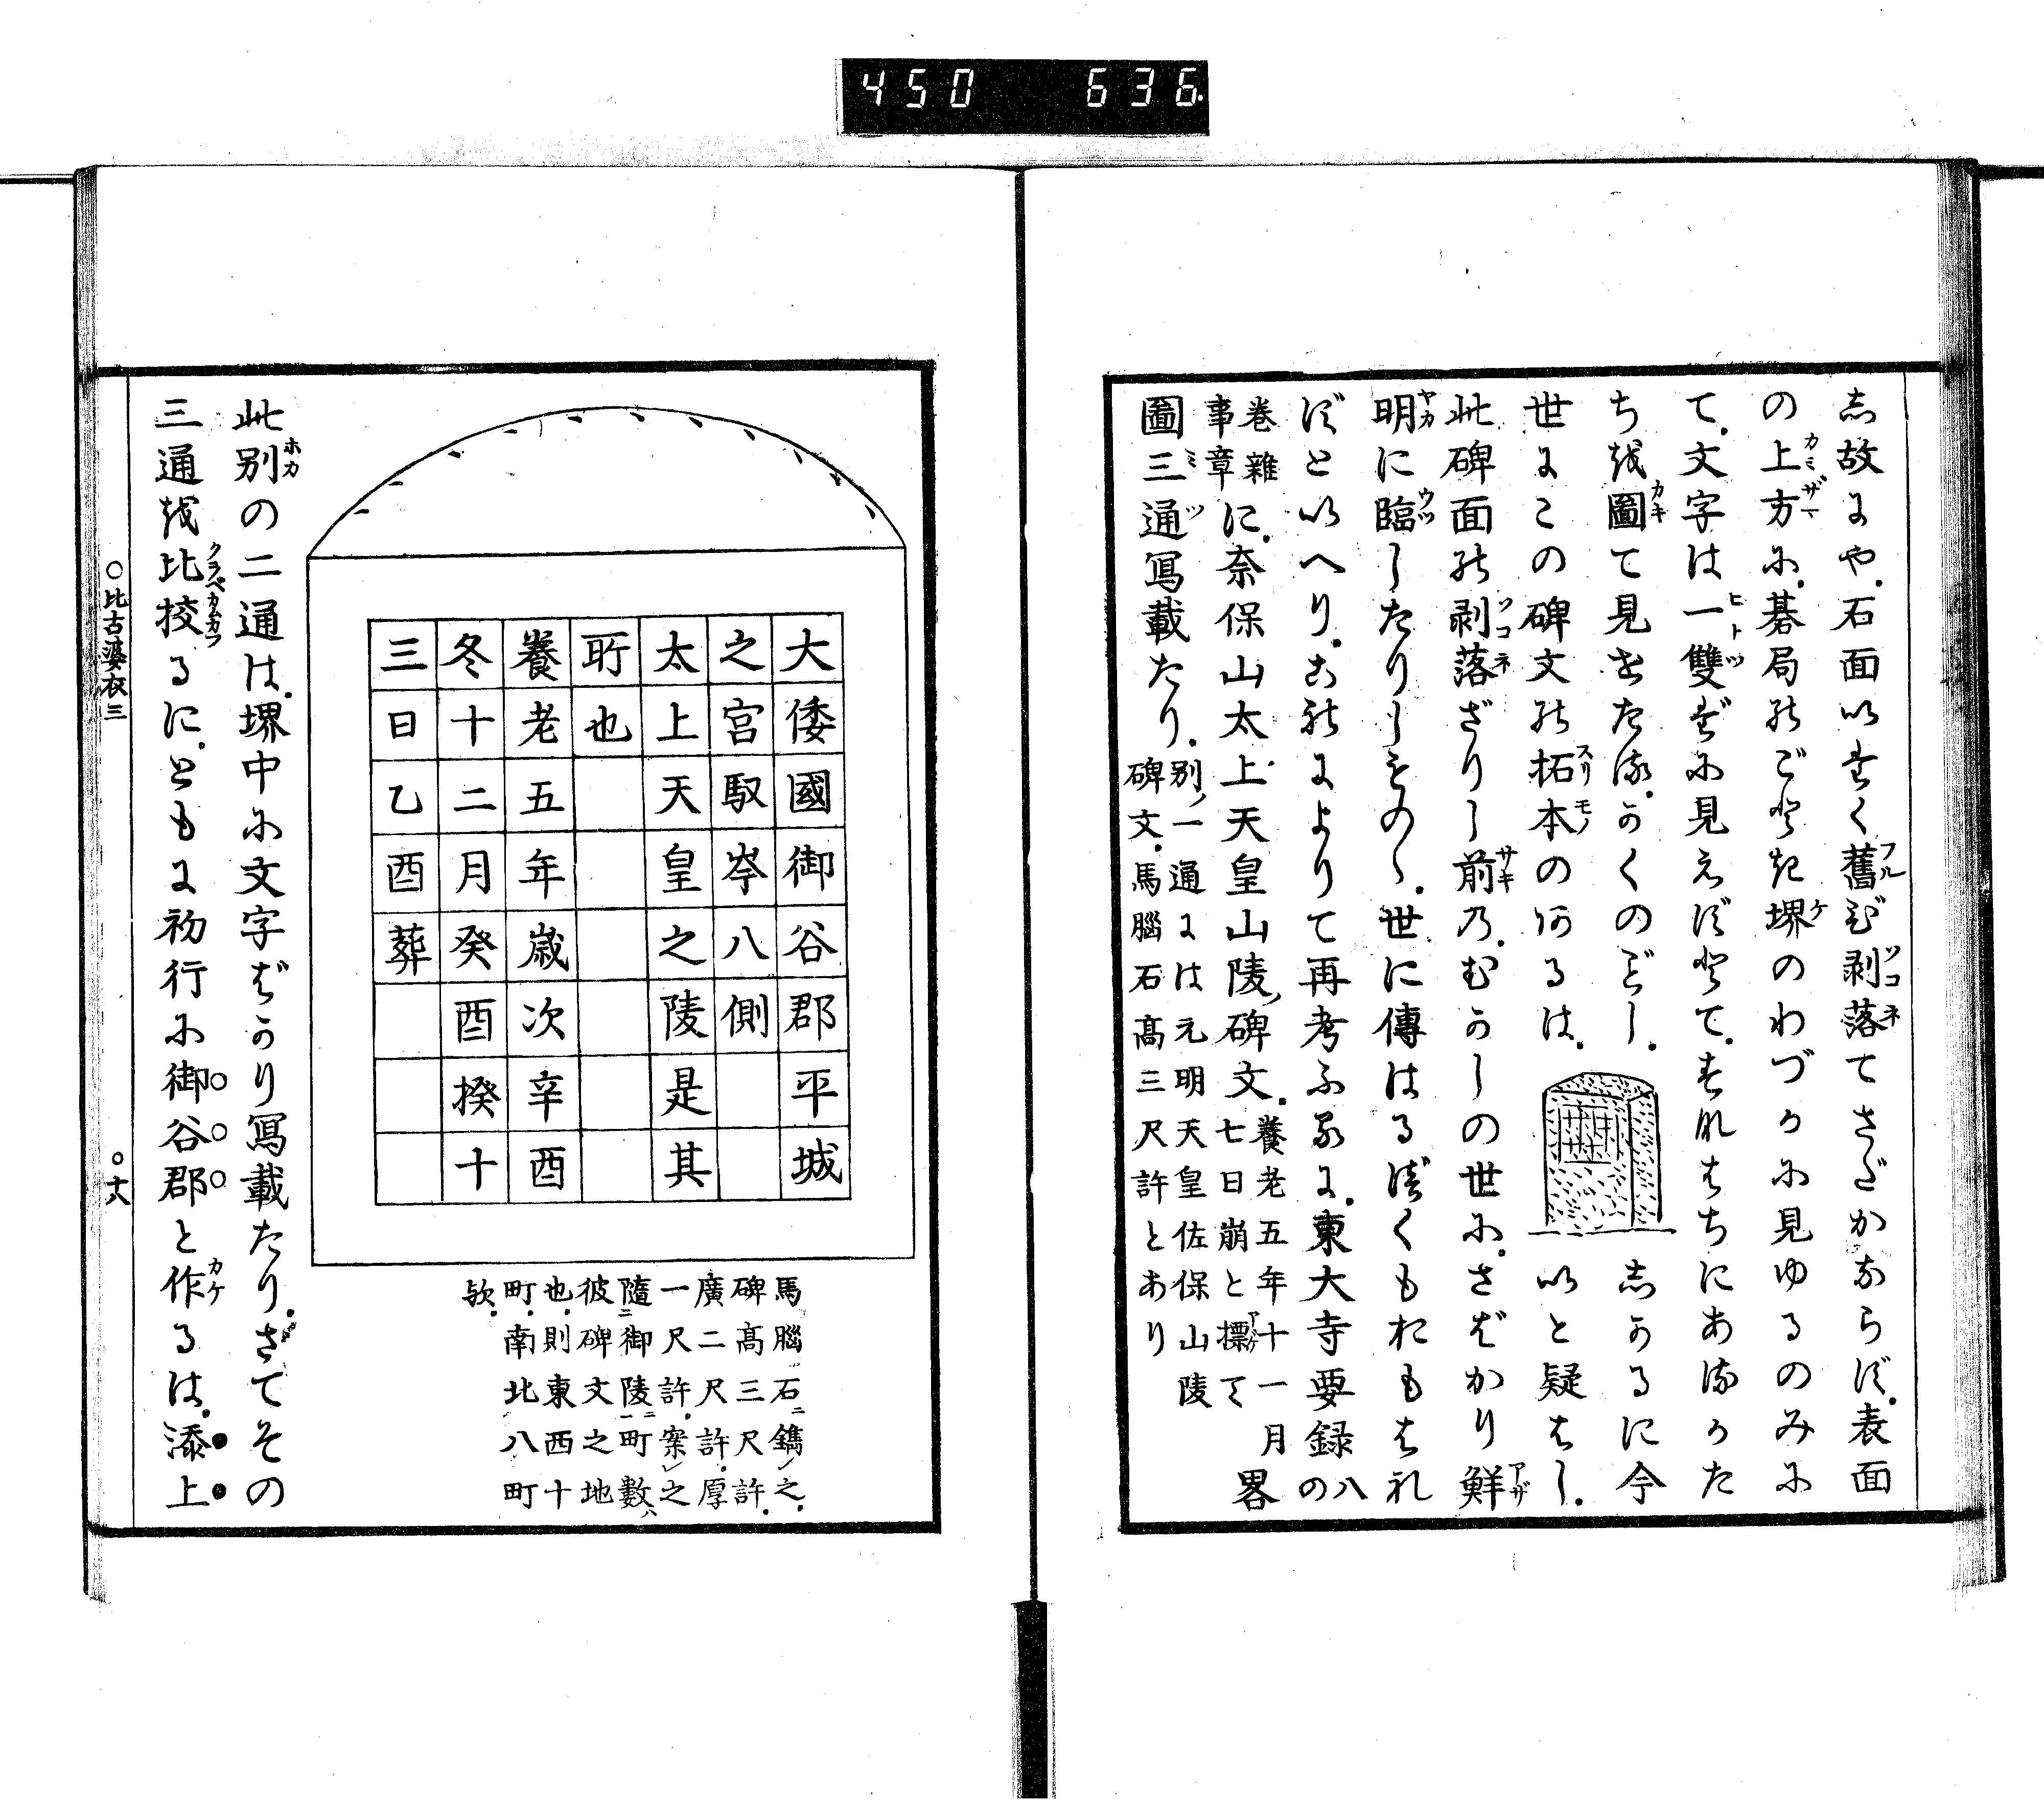 450 636
志故にや。石面いたく舊び剥落てさだかならず。表面
の上方に。碁局のごとき堺のわづかに見ゆるのみに
て。文字は一雙だに見えずとて。それはちにあるかた
ち越圖て見せたる。かくのごとし。しかるに今
世にこの碑文の拓本のあるは。いと疑はし。
此碑面の剥落ざりし前の。むかしの世に。さばかり鮮
明に臨したりしもの丶。世に傳はるべくもおもはれ
ずといへり。これによりて再考ふるに。東大寺要録の八
卷雜事章に。奈保山太上天皇山陵ノ碑文。養老五年十一月七日崩と標て畧
圖三通寫載たり。別ノ一通には元明天皇佐保山陵碑文。馬腦石高三尺許とあり
大倭國御谷郡平城
之宮馭岺八側
太上天皇之陵是其
所也
養老五年歳次辛酉
冬十二月癸酉揆十
三日乙酉葬
馬腦石ニ鐫ノ之。
碑高三尺許。
廣二尺許。厚
一尺許。案ノ之
隨ニ御陵ニ町數ハ
彼碑文之地
也。則東西十
町。南北八町
歟。
此別の二通は。堺中に文字ばかり寫載たり。さてその
三通越比挍るに。ともに初行に御谷郡と作るは。添上
○比古婆衣三 ○十八